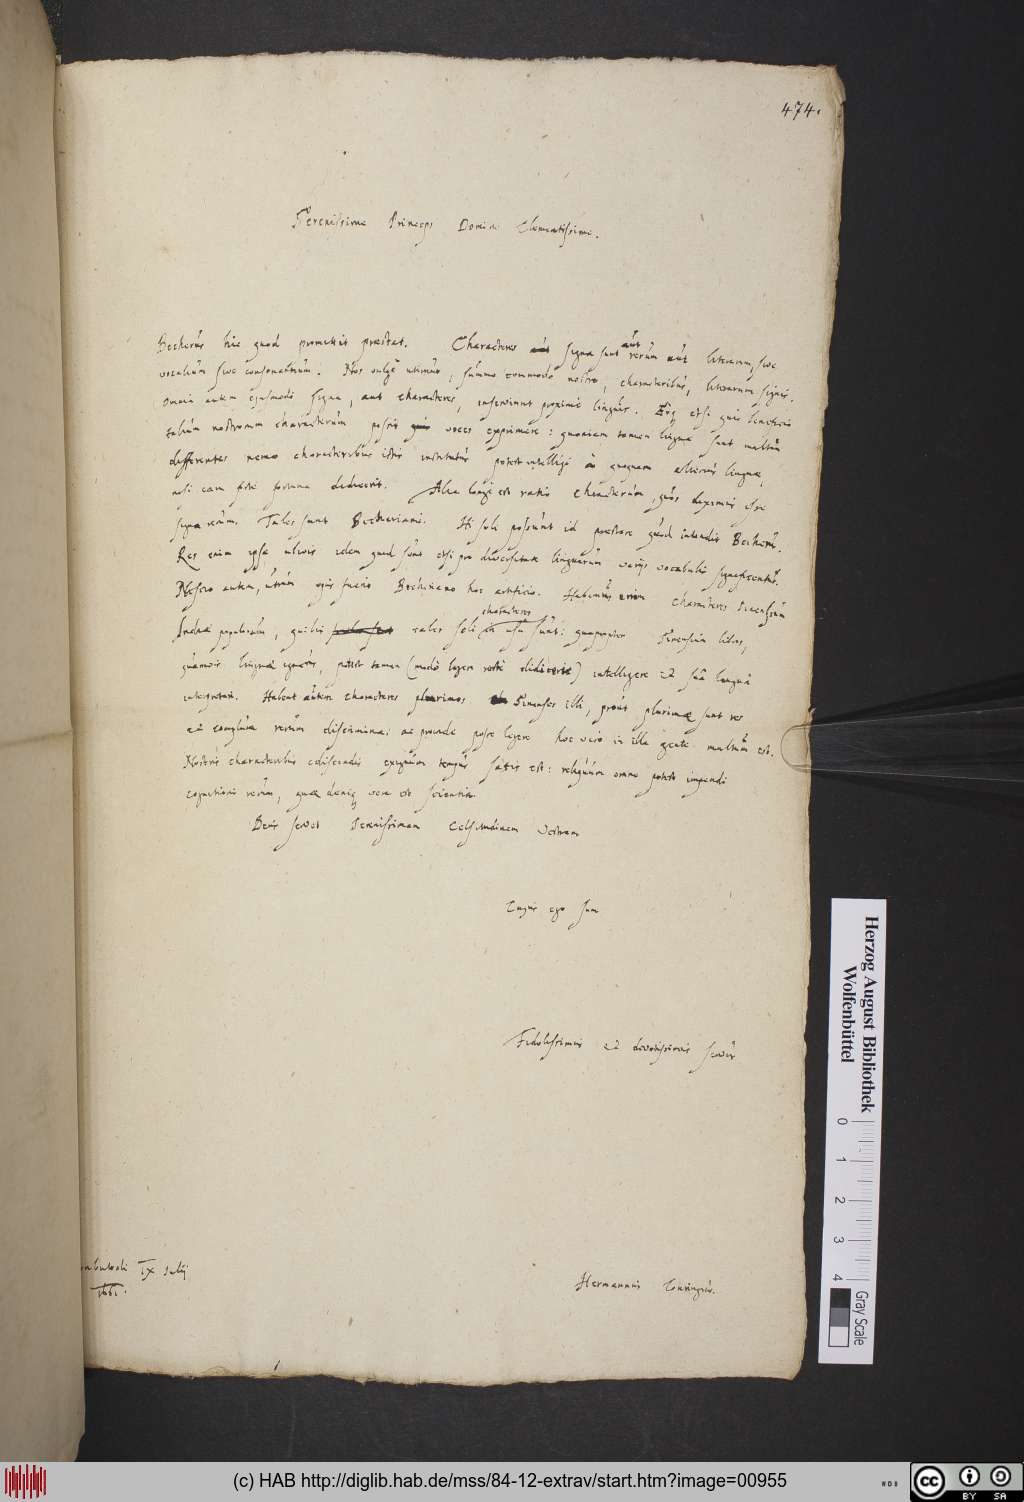 474.
Serenissime Princeps Domine Clementissime.
Becherus hic quod promittit praestat. Characteres signa sunt aut rerum aut literarum, sive
vocalium sive consonantium. Nos vulgò utimur, summo commodo nostro, characteribus, literarum signis.
Omnia autem ejusmodi signa, aut characteres, inserviunt linguis. Erg etsi quis beneficio
talium nostrorum characterum possit voces exprimere: quoniam tamen linguae sunt multum
differentes nemo characteribus istis intelligi à quoquam alterius linguae,
nisi eam fortè didicerit. Alia longè est ratio characterum, quos diximus esse
signa rerum. Tales sunt Becheriani. Hi soli possunt id praestare quod intendit Becherus.
Res enim ipsae ubivis idem quod sunt etsi pro diversitate linguarum variis vocabulis significentur.
Nescio autem, utrum opus fuerit Becheriano hoc artificio. Habemus enim characteres Sinensium
Indiae populorum, quibus tales soli characteres in usu sunt: quapropter Sinensium libros,
quamvis linguae ignarus, potest tamen (modò legere rectè didicerit) intelligere et suâ linguâ
interpretari. Habent autem characteres plurimos Sinenses illi, prout plurimae sunt res
et complura rerum discrimina: ac proinde posse legere hoc vero in illa gente multum est.
Nostris characteribus ediscendis exiguum tempus satis est: reliquum omne potest impendi
cognitioni rerum, quae deniq vera est scientia.
Deus servet Serenissimam Celsitudinem Vestram
Cujus ego sum
Fidelissimus et devotissimus servus
IX Julij
1661.
Hermannus Conringius.
Herzog August Bibliothek
Wolfenbüttel
0 1 2 3 4
Gray Scale
(c) HAB http://diglib.hab.de/mss/84-12-extrav/start.htm?image=00955
cc BY SA